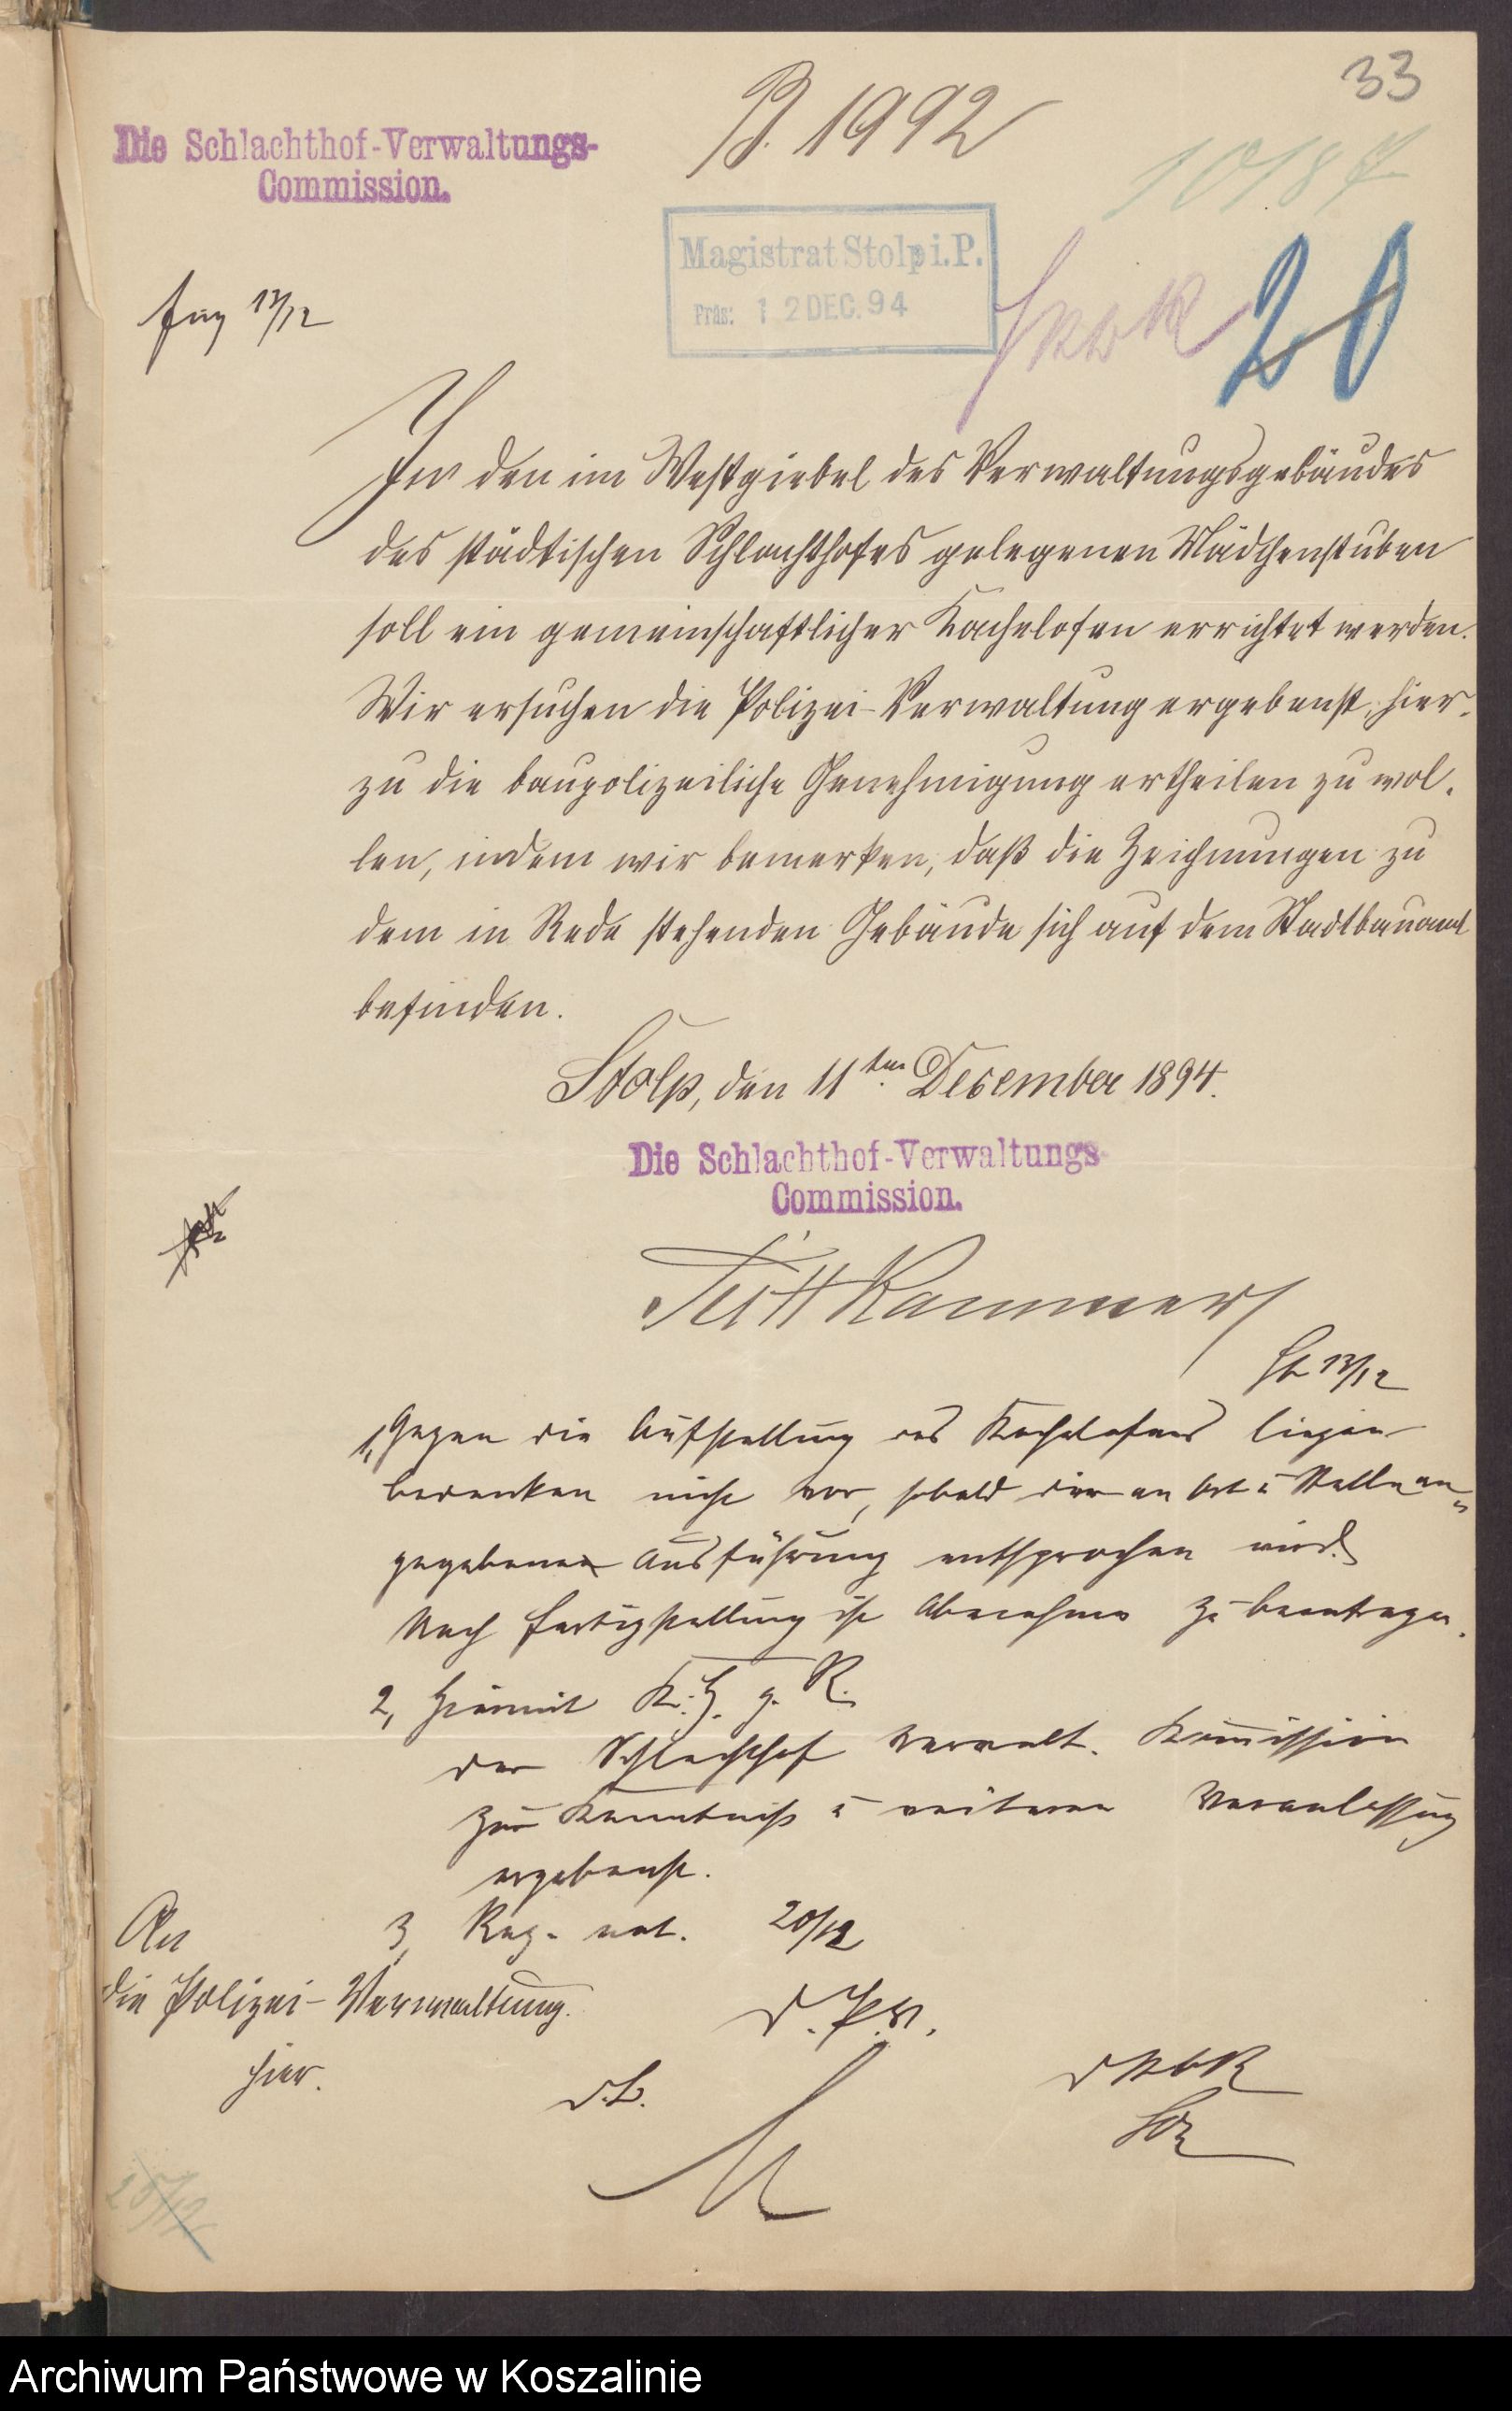 33
B. 1992
10187
Die Schlachthof-Verwaltungs-
Commission.
Magistrat Stolp i. P.
Präs: 12 DEC. 94
20
In den im Westgiebel des Verwaltungsgebäudes
des städtischen Schlachthofes gelegenen Mädchenstuben
soll ein gemeinschaftlicher Kachelofen errichtet werden.
Wir ersuchen die Polizei-Verwaltung ergebenst, hier-
zu die baupolizeiliche Genehmigung ertheilen zu wol-
len, indem wir bemerken, daß die Zeichnungen zu
dem in Rede stehenden Gebäude sich auf dem Stadtbauamt
befinden.
Stolp, den 11ten December 1894.
Die Schlachthof-Verwaltungs-
Commission.
13/12
1, Gegen die Aufstellung des Kachelofens liegen
Bedenken nicht vor, sobald der an Ort u Stelle an-
gegebenen Ausführung entsprochen wird.
Nach Fertigstellung ist Abnahme zu beantragen.
2, Hiermit K. H. g. R.
der Schlachthof Verwalt. Kommission
zur Kenntniß u weiteren Veranlassung
ergebenst.
3, Reg. not. 20/12
An
die Polizei-Verwaltung.
hier.
D. P. V.